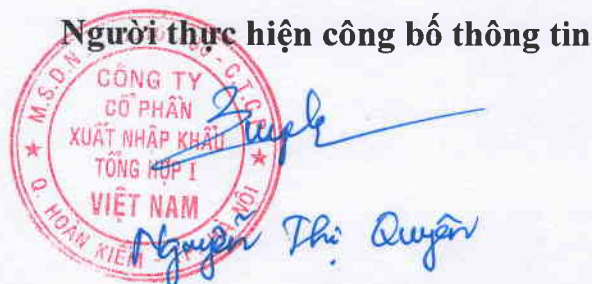 Người thực hiện công bố thông tin
M.S.D.N
C.T.C.P
CÔNG TY
CỔ PHẦN
XUẤT NHẬP KHẨU
TỔNG HỢP I
VIỆT NAM
Q. HOÀN KIẾM - TP HÀ NỘI
Nguyễn Thị Quyên